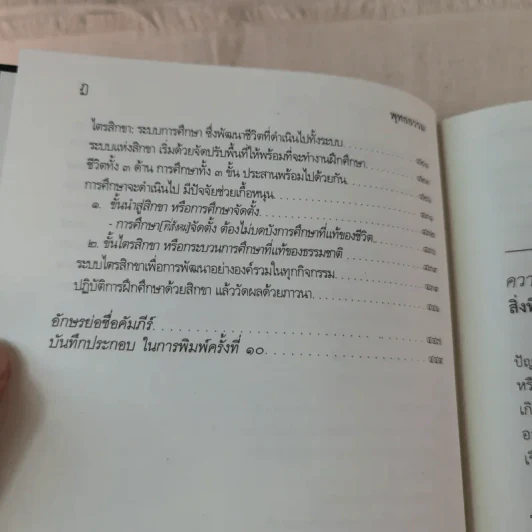 ฏ
พุทธธรรม
ไตรสิกขา: ระบบการศึกษา ซึ่งพัฒนาชีวิตที่ดำเนินไปทั้งระบบ
ระบบแห่งสิกขา เริ่มด้วยจัดปรับพื้นที่ให้พร้อมที่จะทำงานฝึกศึกษา
ชีวิตทั้ง ๓ ด้าน การศึกษาทั้ง ๓ ขั้น ประสานพร้อมไปด้วยกัน
การศึกษาจะดำเนินไป มีปัจจัยช่วยเกื้อหนุน
๑. ขั้นนำสู่สิกขา หรือการศึกษาจัดตั้ง
- การศึกษา(ที่ให้ผล)จัดตั้ง ต้องไม่บดบังการศึกษาที่แท้ของชีวิต
๒. ขั้นไตรสิกขา หรือกระบวนการศึกษาที่แท้ของธรรมชาติ
ระบบไตรสิกขาเพื่อการพัฒนาอย่างองค์รวมในทุกกิจกรรม
ปฏิบัติการฝึกศึกษาด้วยสิกขา แล้ววัดผลด้วยภาวนา
อักษรย่อชื่อคัมภีร์
บันทึกประกอบ ในการพิมพ์ครั้งที่ ๑๐
ควา
สิ่งที
ปัญ
หรือ
เกิ